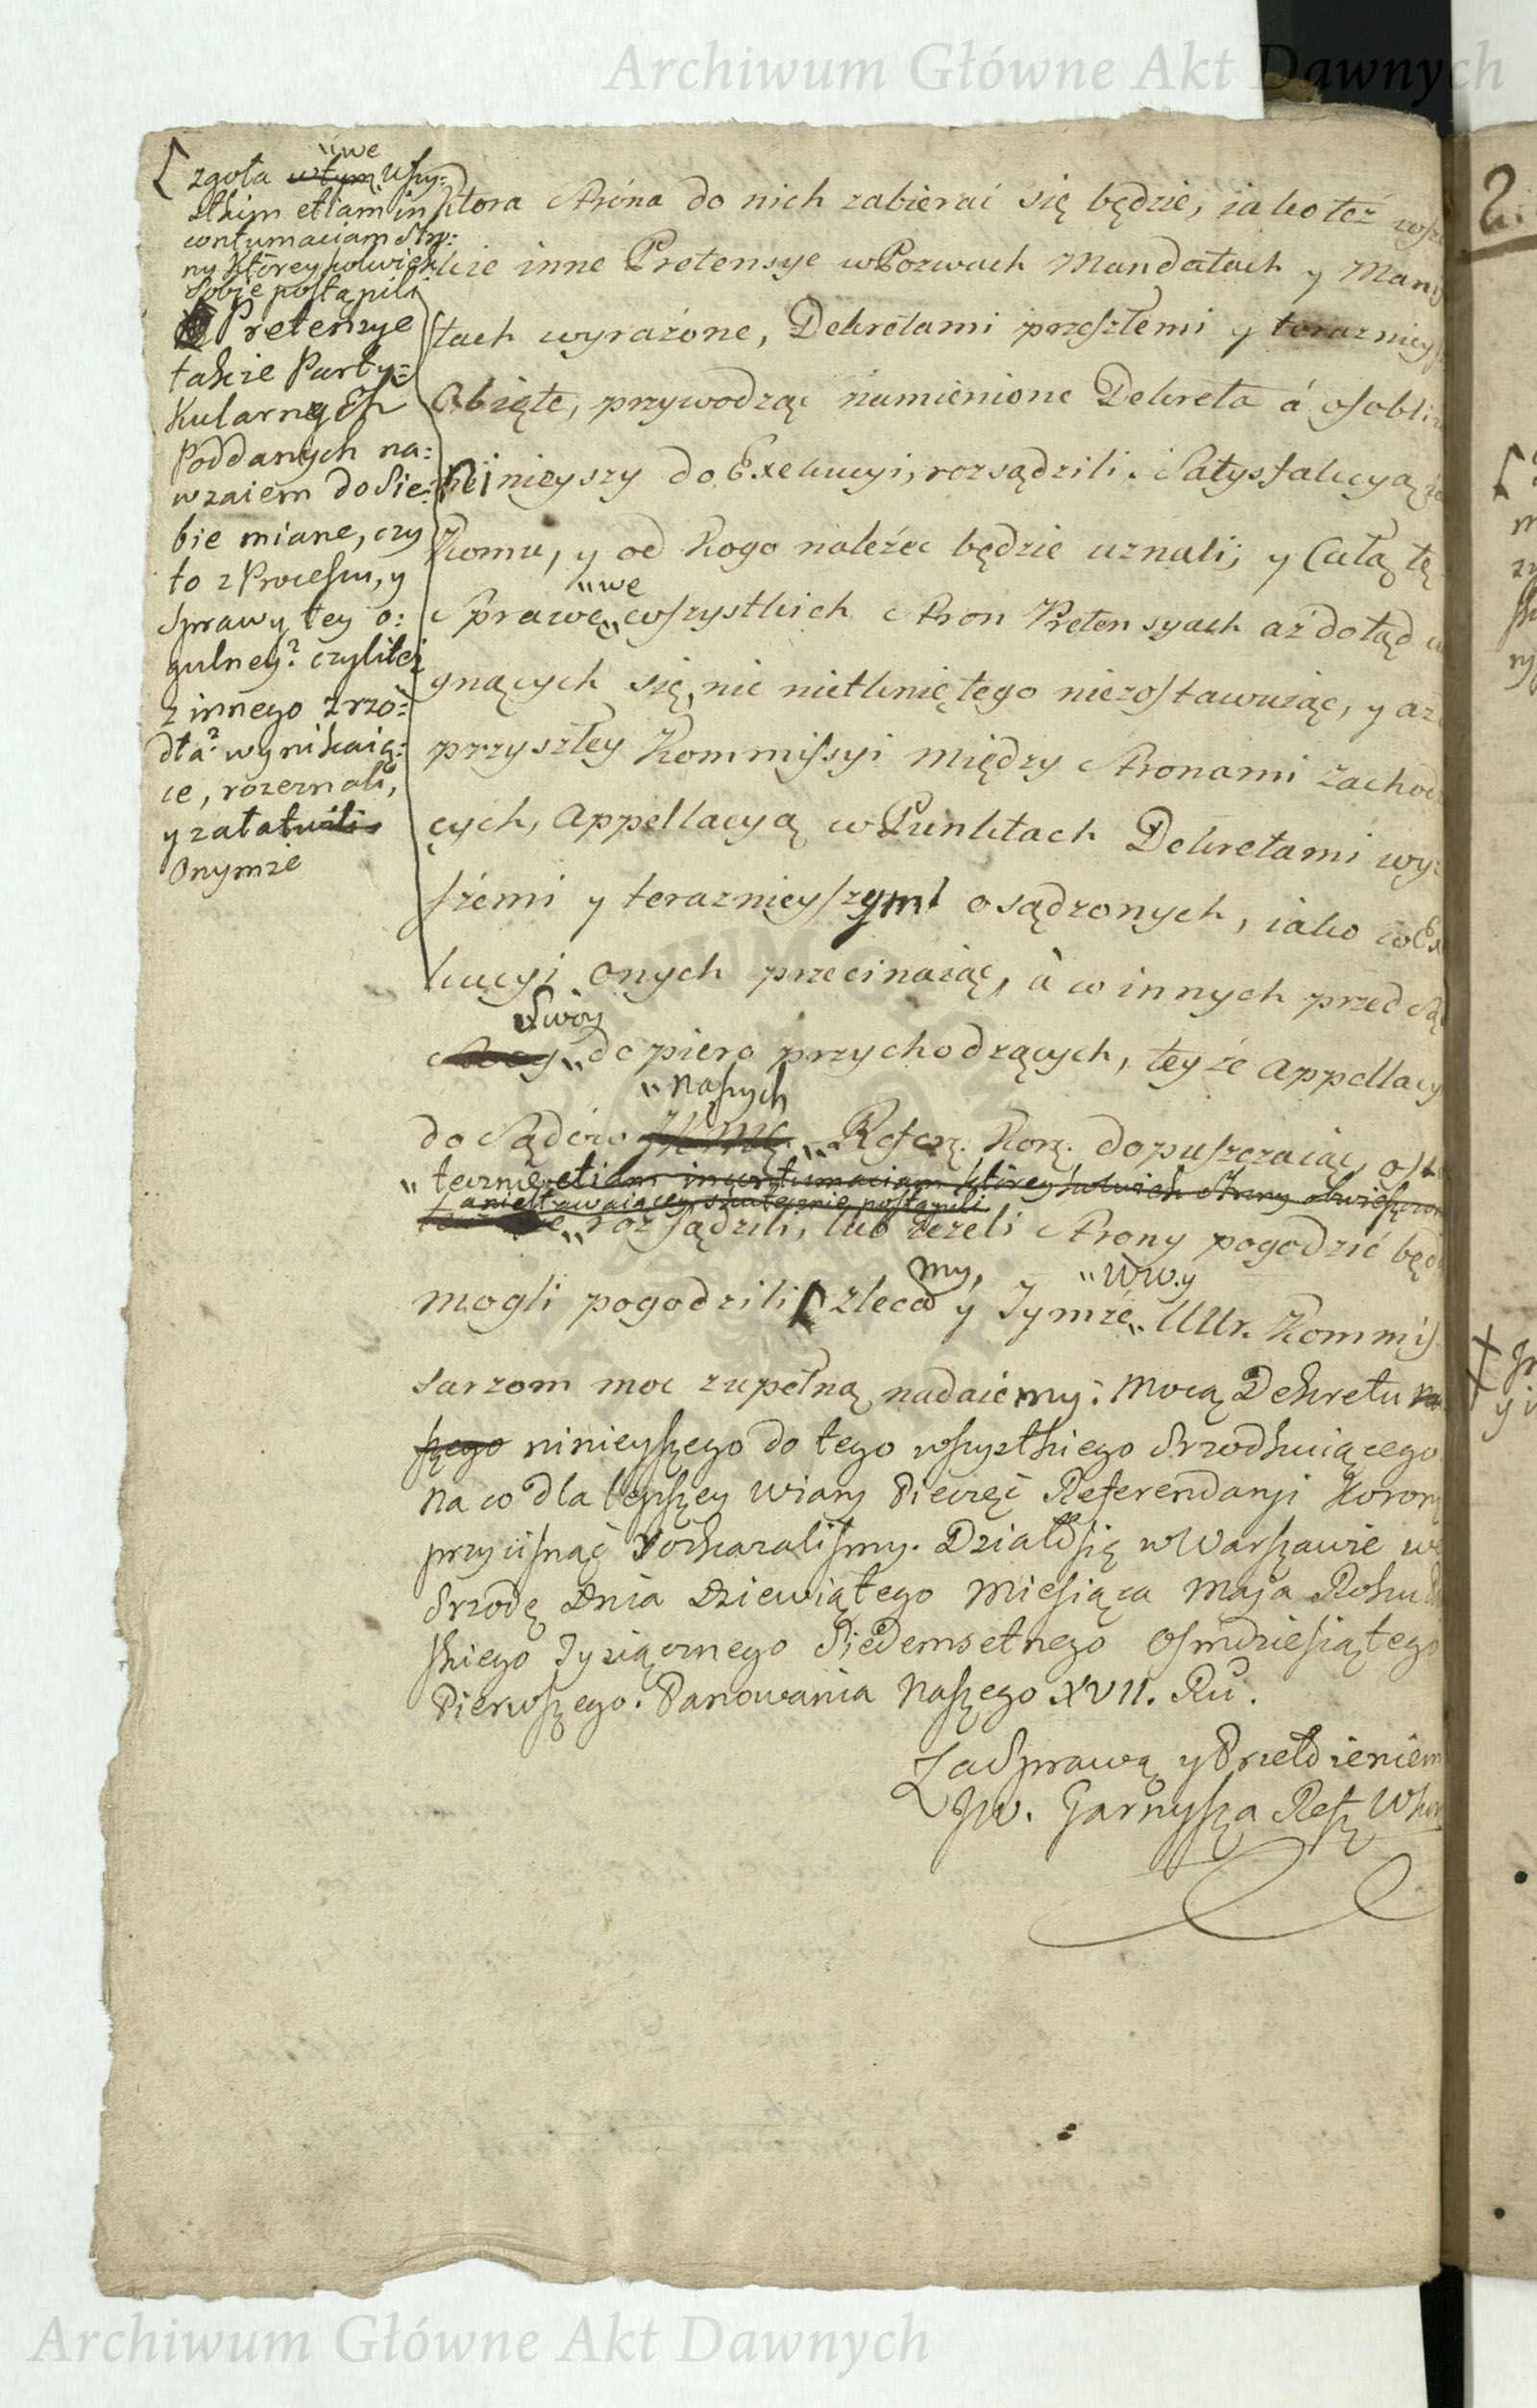 Archiwum Główne Akt Dawnych
zgoła w tym "we wszy=
stkim etiam in
contumaciam Stro=
ny Ktoreykolwiek
sobie postąpili
Pretensye
także Party=
kularnych
Poddanych na=
wzaiem do Sie=
bie miane, czy
to z Procesu, y
Sprawy tey o=
gulney? czyliteż
z innego zrzó=
dła? wynikaią=
ce, rozeznali,
y załatwili
Onymże
ktora Strona do nich zabierać się będzie, iako też
kie inne Pretensye w Pozwach Mandatach y
stach wyrażone, Dekretami przeszłemi y
Obięte, przywodząc namienione Dekreta á
ninieyszy do Exekucyi, rozsądzili. Satysfakcyą
Komu, y od Kogo należeć będzie uznali; y Całą tę
Sprawę "we wszystkich Stron Pretensyach aż dotąd
gnących się, nic nietkniętego niezostawuiąc, y
przyszłey Kommissyi między Stronami
cych, Appellacyą w Punktach Dekretami wy=
szemi y teraznieyszymi osądzonych, iako w
kucyi onych przecinaiąc, à w innych przed
Swoy
dopiero przychodzących, teyże
"naszych
do Sądów JKMci. Refer. Kor. dopuszczaiąc,
"tecznie etiam in contumaciam ktoreykolwiek Strony
a niestawaiącey skutecznie postąpili
rozsądzili, lub ieżeli Strony pogodzić
my, y "WW. y
mogli pogodzili zleca y Tymże UUr.
sarzom moc zupełną nadaiemy; mocą Dekretu
szego ninieyszego do tego wszystkiego Srzodkuiącego
na co dla lepszey Wiary Pieczęć Referendaryi
przycisnąć rozkazalismy. Działo się w Warszawie we
Srzodę Dnia Dziewiątego Miesiąca Maja Roku
skiego Tysiącznego Siedemsetnego Osmdziesiątego
Pierwszego. Panowania Naszego XVII. Ru.
Za Sprawą y Przełożeniem
JW. Garnysza Ref.
2.
Archiwum Główne Akt Dawnych